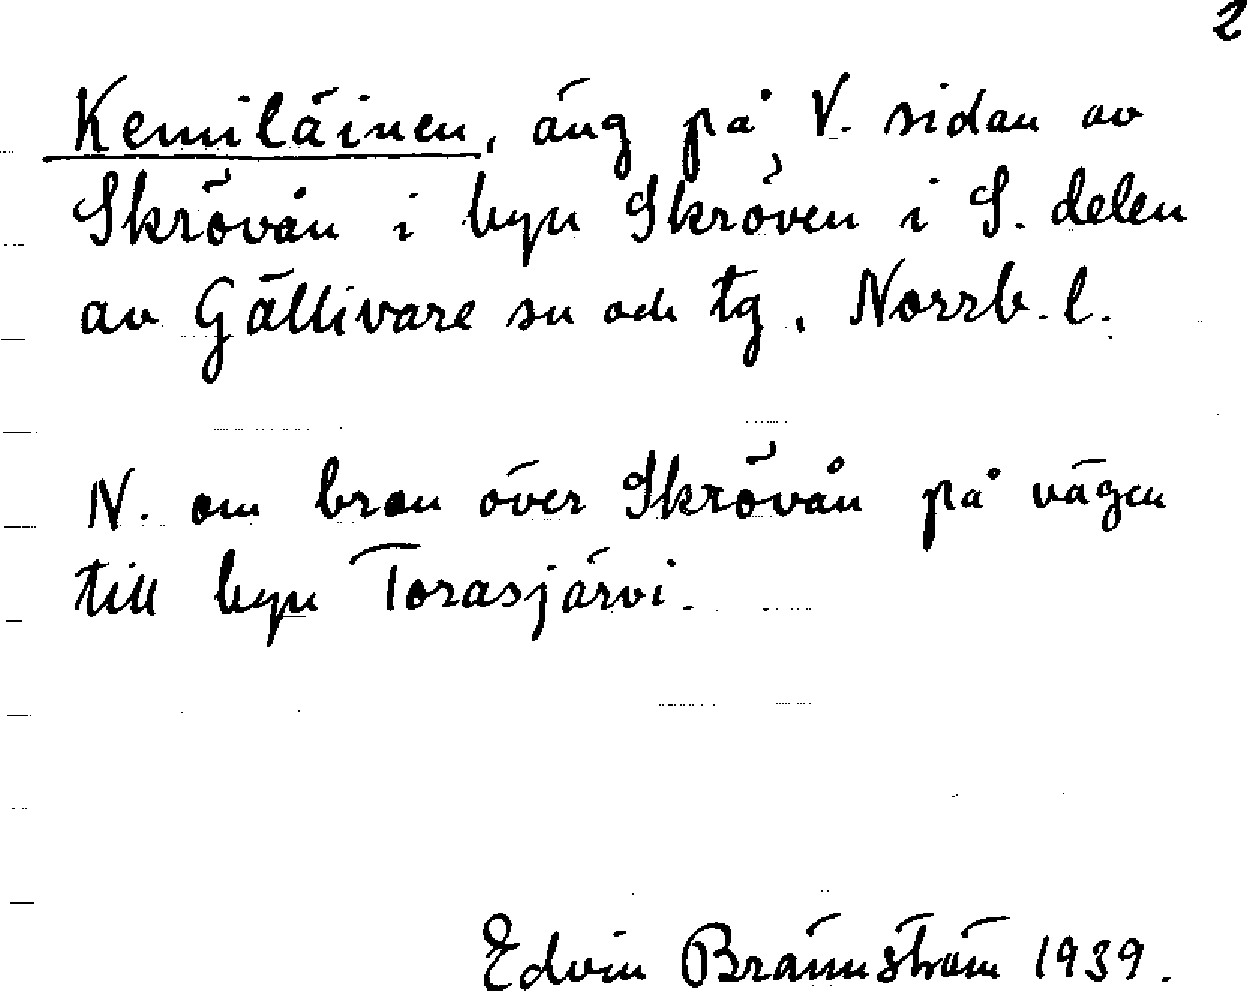 2
Kemiläinen, äng på V. sidan av
Skrövån i byn Skröven i S. delen
av Gällivare sn och tg. Norrb. l.
N. om bron över Skrövån på vägen
till byn Torasjärvi.
Edvin Brännström 1939.